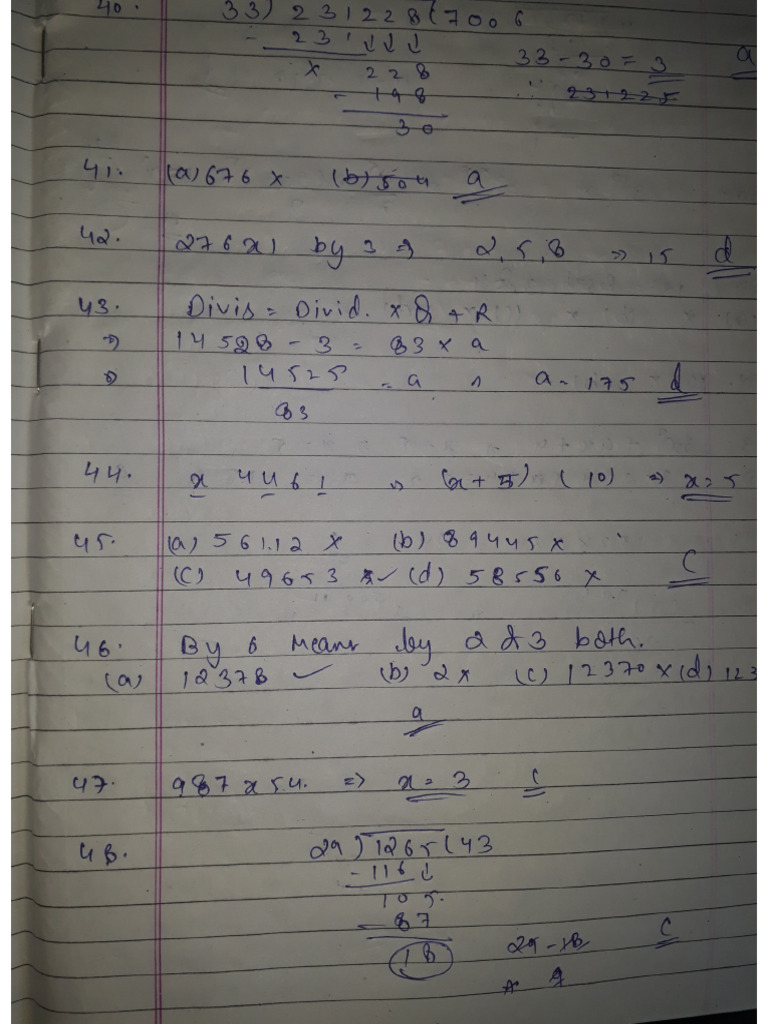 40. 33) 231228 (7006
- 231 ↓↓↓
x 228 33 - 30 = 3 a
- 198 ∴ 231225
30
41. (a) 676 x (b) 504 a
42. 276x1 by 3 ⇒ 2, 5, 8 ⇒ 15 d
43. Divis = Divid. × Q + R
⇒ 14528 - 3 = 83 × a
⇒ 14525 = a a = 175 d
83
44. x 4461 (x + 5) (10) ⇒ x = 5
45. (a) 56112 x (b) 89445 x
(c) 49653 ✓ (d) 58556 x c
46. By 6 means by 2 & 3 both.
(a) 12378 ✓ (b) 2x (c) 12370 x (d) 123
a
47. 987x54. ⇒ x = 3 c
48. 29) 1265 (43
- 116 ↓
105.
- 87
18 29 - 18 c